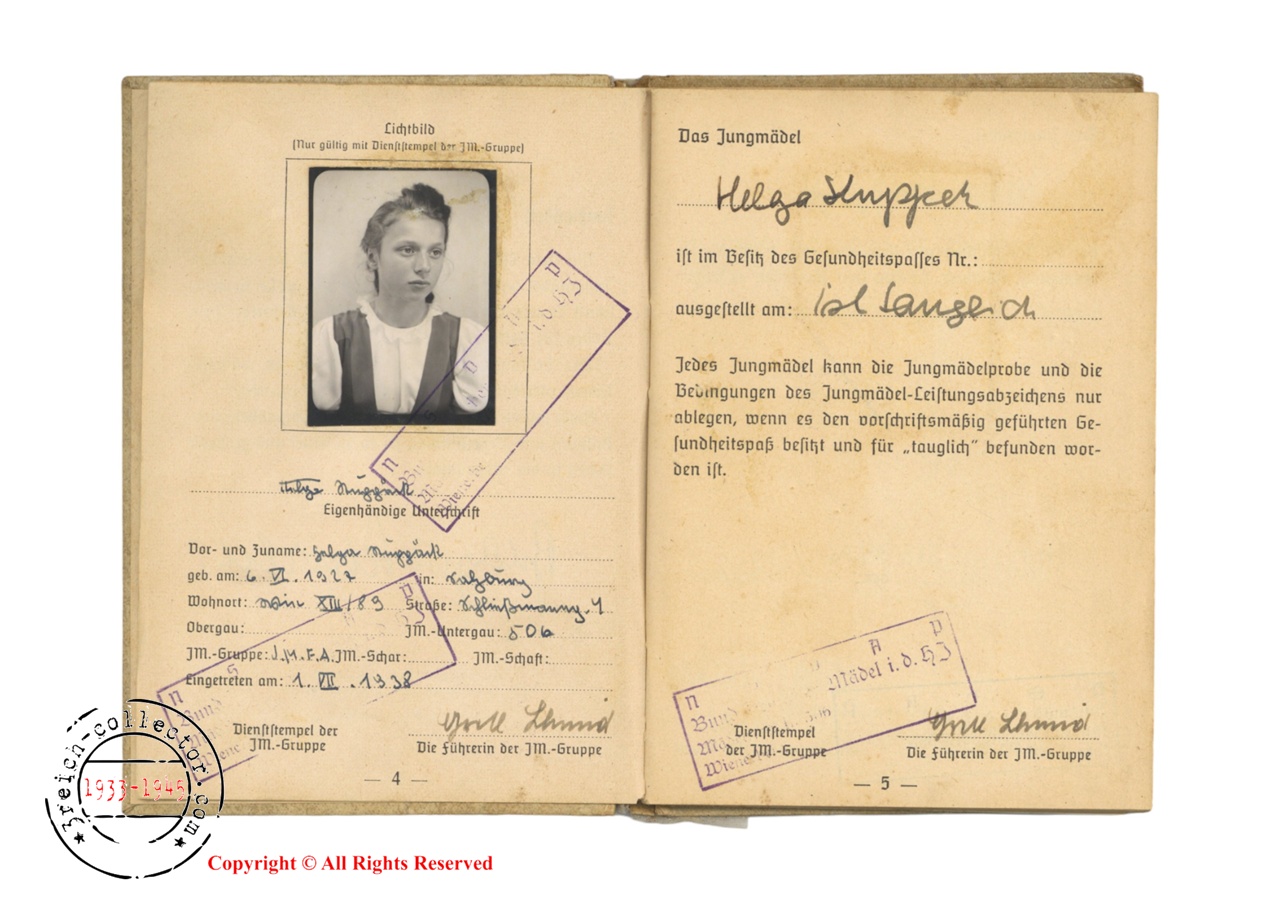 Lichtbild
(Nur gültig mit Dienststempel der JM.-Gruppe)
Helga
Eigenhändige Unterschrift
Vor- und Zuname: Helga
geb. am: 6. VI. 1927 in: Salzburg
Wohnort: Wien XIII/89 Straße:
Obergau: JM.-Untergau: 506
JM.-Gruppe: J.M.F.A. JM.-Schar: JM.-Schaft:
Eingetreten am: 1. VII. 1938
Dienststempel der
JM.-Gruppe
Die Führerin der JM.-Gruppe
— 4 —
Das Jungmädel
Helga
ist im Besitz des Gesundheitspasses Nr.:
ausgestellt am: ist tauglich
Jedes Jungmädel kann die Jungmädelprobe und die
Bedingungen des Jungmädel-Leistungsabzeichens nur
ablegen, wenn es den vorschriftsmäßig geführten Ge-
sundheitspaß besitzt und für „tauglich" befunden wor-
den ist.
N A P
Bund Mädel i. d. HJ
Dienststempel
der JM.-Gruppe
Die Führerin der JM.-Gruppe
— 5 —
3reich-collector.com
1933-1945
Copyright © All Rights Reserved